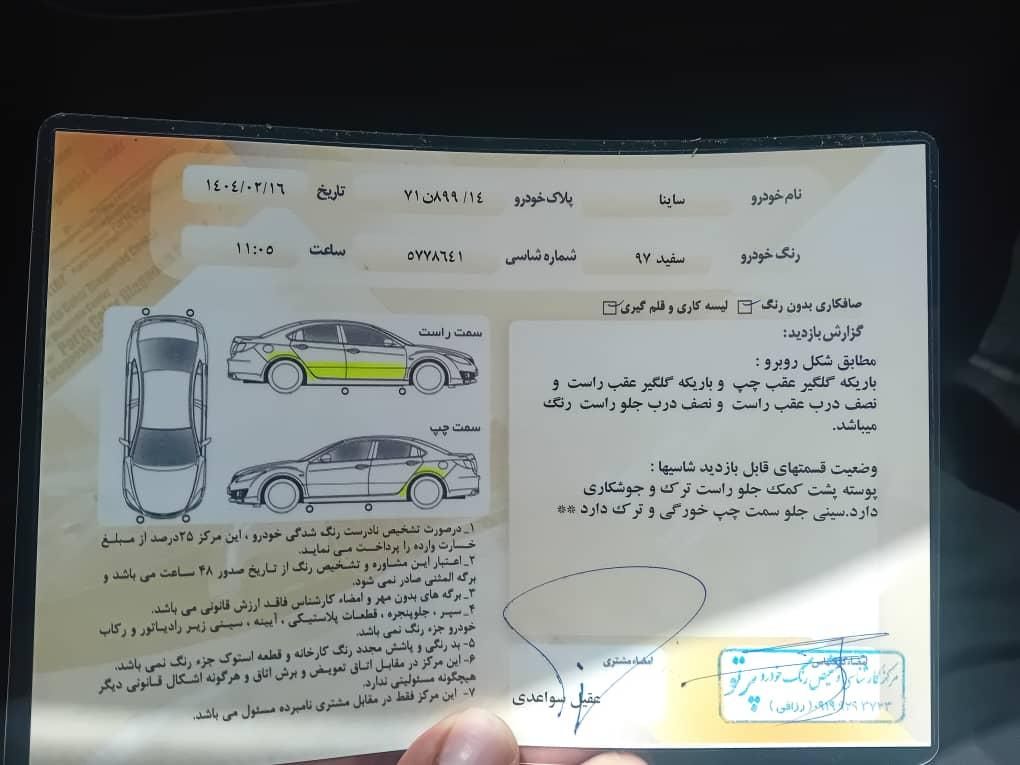 نام خودرو ساینا پلاک خودرو ۱۴/ ۸۹۹ن۷۱ تاریخ ۱۴۰۴/۰۲/۱۶
رنگ خودرو سفید ۹۷ شماره شاسی ۵۷۷۸۶٤۱ ساعت ۱۱:۰۵
صافکاری بدون رنگ لیسه کاری و قلم گیری
گزارش بازدید:
مطابق شکل روبرو :
باریکه گلگیر عقب چپ و باریکه گلگیر عقب راست و
نصف درب عقب راست و نصف درب جلو راست رنگ
میباشد.
وضعیت قسمتهای قابل بازدید شاسیها :
پوسته پشت کمک جلو راست ترک و جوشکاری
دارد.سینی جلو سمت چپ خورگی و ترک دارد **
سمت راست
سمت چپ
۱_ درصورت تشخیص نادرست رنگ شدگی خودرو ، این مرکز ۲۵درصد از مبلغ
خسارت وارده را پرداخت می نماید.
۲_ اعتبار این مشاوره و تشخیص رنگ از تاریخ صدور ۴۸ ساعت می باشد و
برگه المثنی صادر نمی شود.
۳_ برگه های بدون مهر و امضاء کارشناس فاقد ارزش قانونی می باشد.
۴_ سپر ، جلوپنجره ، قطعات پلاستیکی ، آیینه ، سینی زیر رادیاتور و رکاب
خودرو جزء رنگ نمی باشد.
۵- بد رنگی و پاشش مجدد رنگ کارخانه و قطعه استوک جزء رنگ نمی باشد.
۶- این مرکز در مقابل اتاق تعویض و برش اتاق و هرگونه اشکال قانونی دیگر
هیچگونه مسئولیتی ندارد.
۷- این مرکز فقط در مقابل مشتری نامبرده مسئول می باشد.
امضاء مشتری
عقیل سواعدی
امضاء کارشناس
مرکز کارشناسی و تشخیص رنگ خودرو پرتو